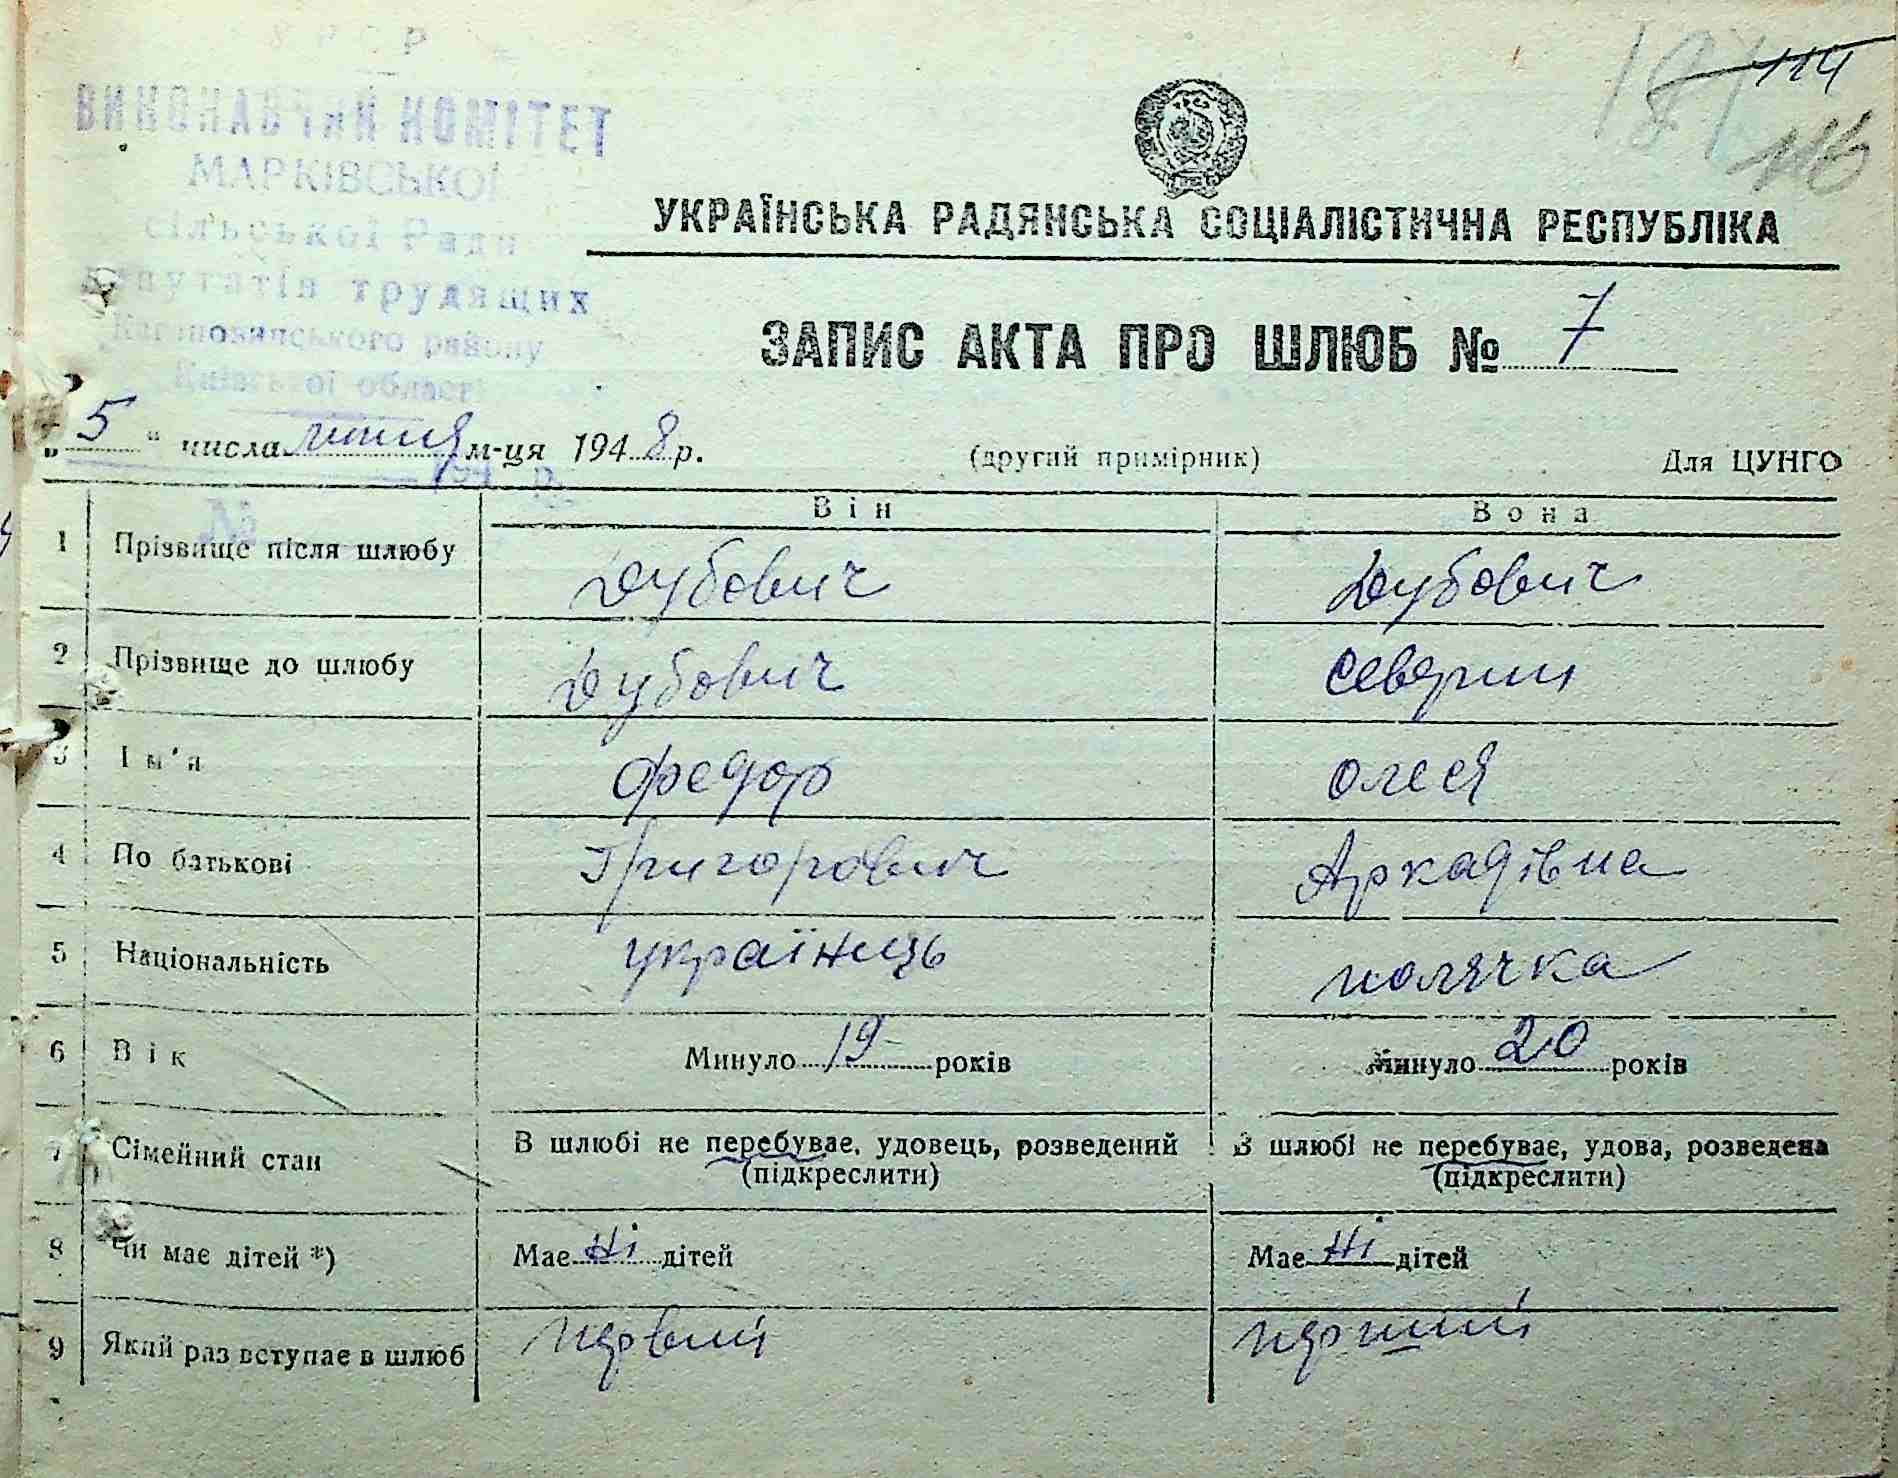 УРСР
ВИКОНАВЧИЙ КОМІТЕТ
МАРКІВСЬКОЇ
сільської Ради
депутатів трудящих
Кагановицького району
Київської області
194 р.
№
114
116
УКРАЇНСЬКА РАДЯНСЬКА СОЦІАЛІСТИЧНА РЕСПУБЛІКА
ЗАПИС АКТА ПРО ШЛЮБ № 7
"5" числа липня м-ця 1948 р. (другий примірник) Для ЦУНГО
Він Вона
1 Прізвище після шлюбу Дубович Дубович
2 Прізвище до шлюбу Дубович Северин
3 Ім'я Федор Олеся
4 По батькові Григорович Аркадівна
5 Національність українець полячка
6 Вік Минуло 19 років Минуло 20 років
7 Сімейний стан В шлюбі не перебуває, удовець, розведений В шлюбі не перебуває, удова, розведена
(підкреслити) (підкреслити)
8 Чи має дітей *) Має ні дітей Має ні дітей
9 Який раз вступає в шлюб первий перший